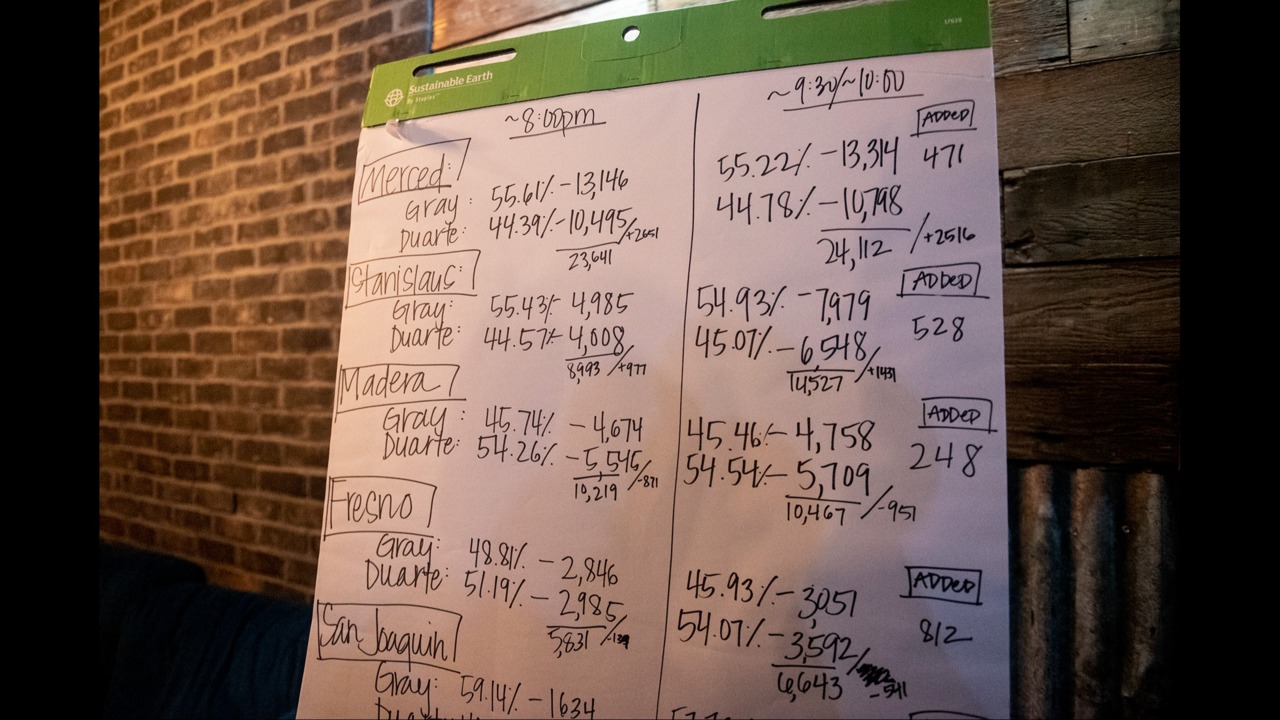 Sustainable Earth
By Staples
~8:00pm
Merced:
Gray: 55.61% - 13,146
Duarte: 44.39% - 10,495 / +2651
23,641
Stanislaus:
Gray: 55.43% - 4,985
Duarte: 44.57% - 4,008
8,993 / +977
Madera
Gray: 45.74% - 4,674
Duarte: 54.26% - 5,545
10,219 / -871
Fresno
Gray: 48.81% - 2,846
Duarte: 51.19% - 2,985
5,831 / -139
San Joaquin
Gray: 59.14% - 1634
~9:30/~10:00
ADDED
55.22% - 13,314 471
44.78% - 10,798
24,112 / +2516
ADDED
54.93% - 7,979 528
45.07% - 6,548
14,527 / +1431
ADDED
45.46% - 4,758 248
54.54% - 5,709
10,467 / -951
ADDED
45.93% - 3,051 812
54.07% - 3,592
6,643 / -541